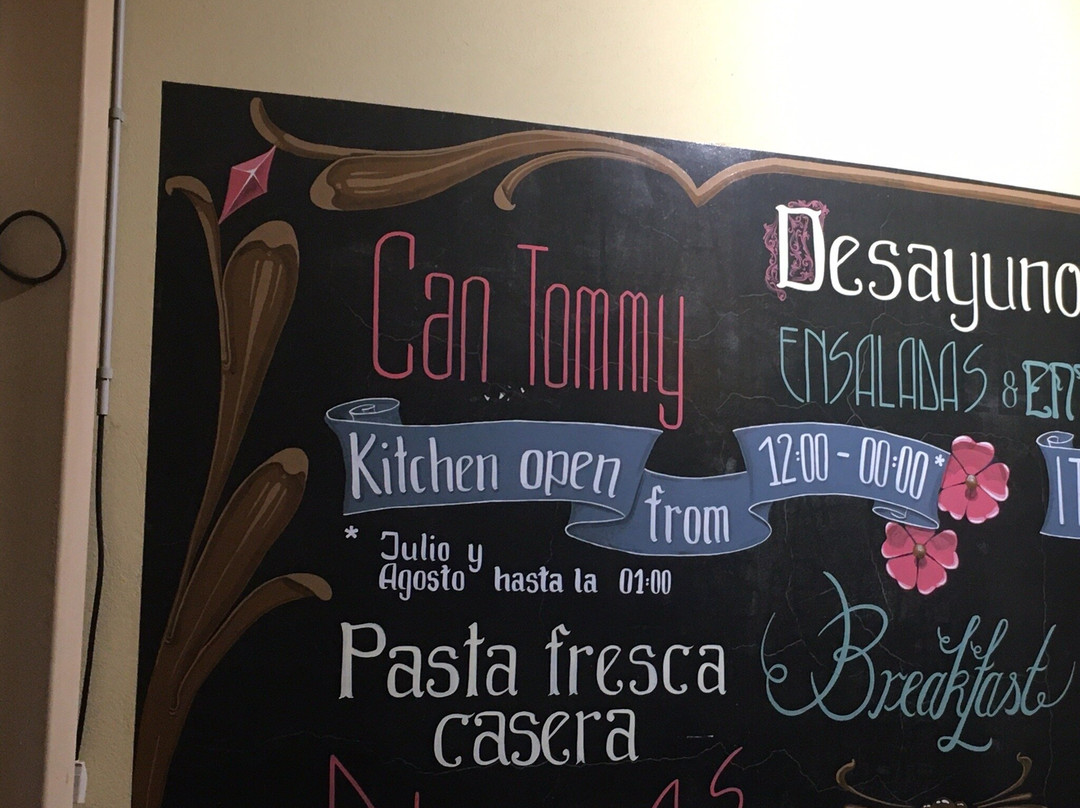 Can Tommy
Desayuno
ENSALADAS &
Kitchen open from 12:00 - 00:00*
* Julio y
Agosto hasta la 01:00
Pasta fresca
casera
Breakfast